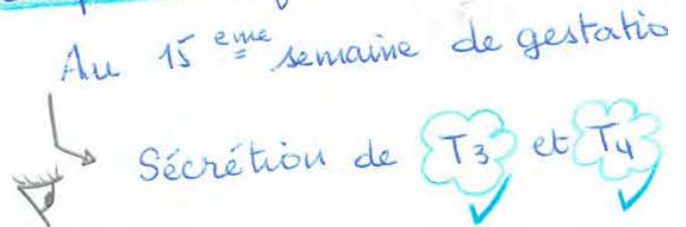 Au 15 eme semaine de gestatio
Sécrétion de T3 et T4